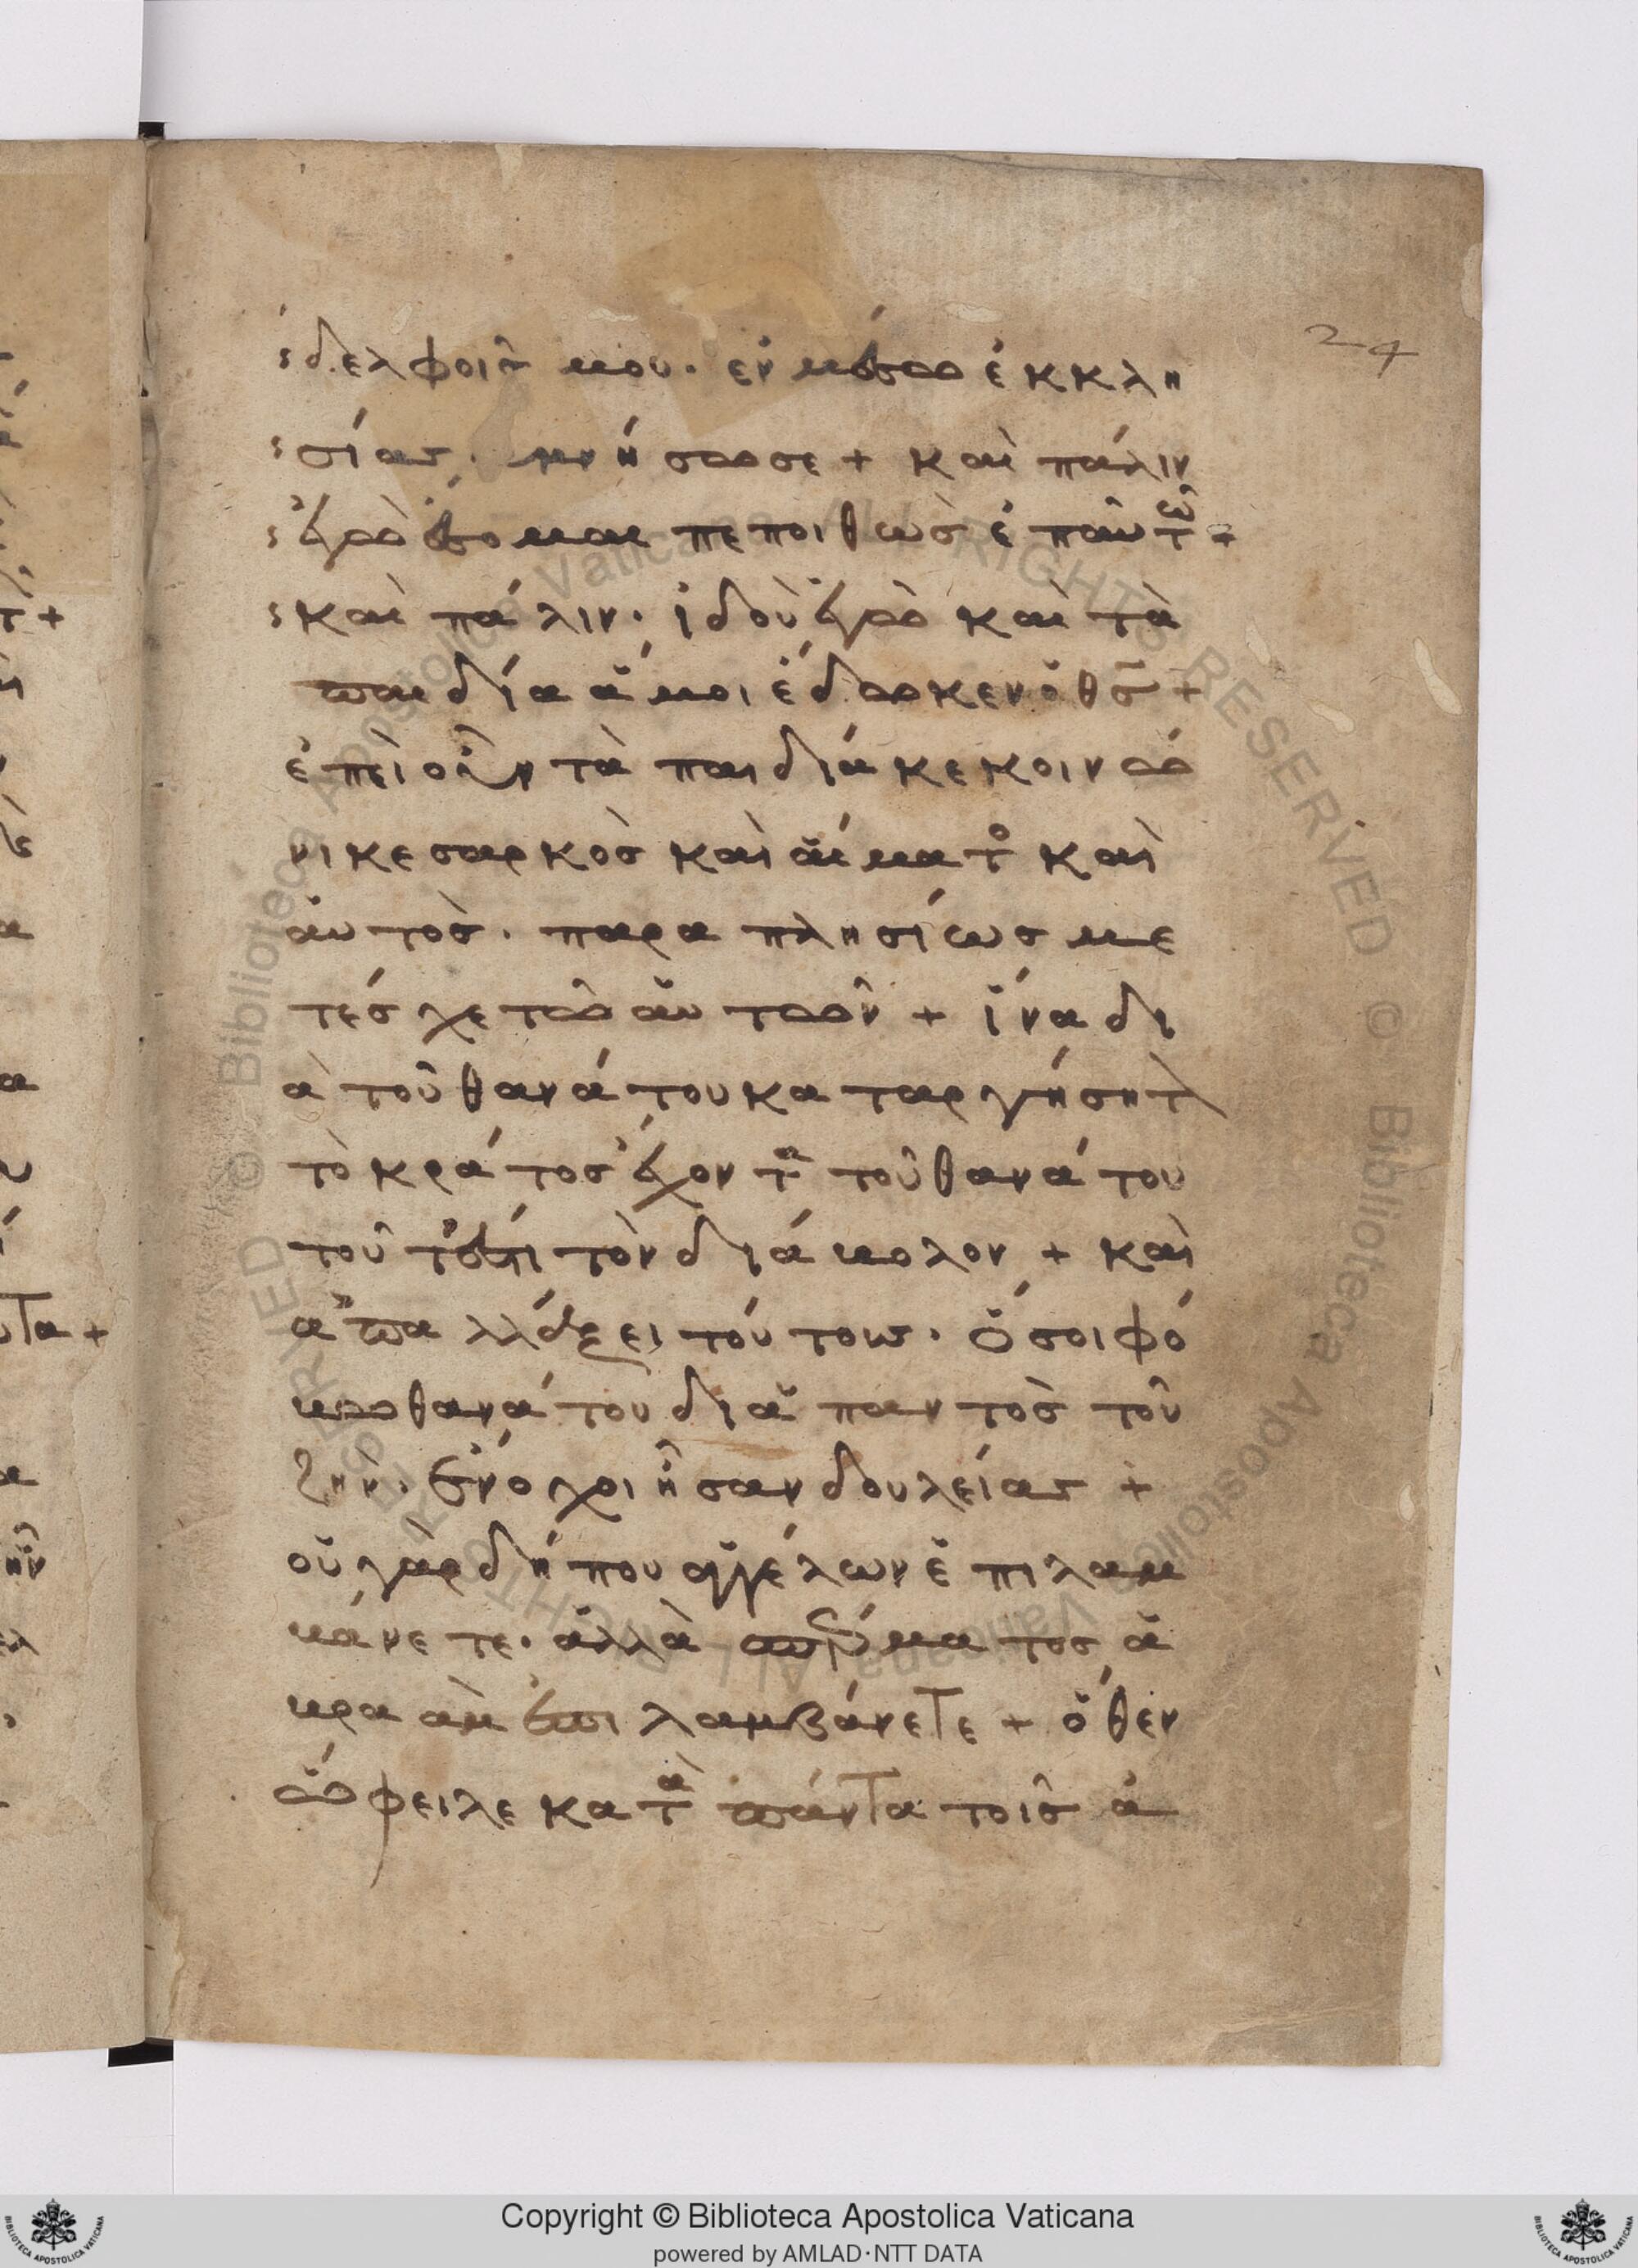 24
δελφοῖς μου· ἐν μέσω ἐκκλη
σίας· ὑμνήσωσε + καὶ πάλιν
ἐγὼ ἔσομαι πεποιθὼς ἐπαυτῶ +
καὶ πάλιν· ἰδοὺ ἐγὼ καὶ τὰ
παιδία ἅ μοι ἔδωκεν ὁ θσ +
ἐπὶ οὖν τὰ παιδία κεκοινώ
νικε σαρκὸς καὶ αἵματο καὶ
αὐτὸς· παραπλησίως με
τέσχε τῶ αὐτῶν + ἵνα δι
ὰ τοῦ θανάτου καταργήσητ
τὸ κράτος ἔχοντα τοῦ θανάτου
τοῦ τέστι τὸν διάβολον + καὶ
ἀπαλλάξει τούτους· ὅσοι φό
βω θανάτου διὰ παντὸς τοῦ
ζῆν· ἔνοχοι ἦσαν δουλείας +
οὐ γὰρ δήπου ἀγγέλων ἐπιλαμ
βάνετε· ἀλλὰ σπέρματος ἀ
βραὰμ ἐπιλαμβάνετε + ὅθεν
ὤφειλε κατὰ πάντα τοῖς ἀ
Copyright © Biblioteca Apostolica Vaticana
powered by AMLAD·NTT DATA